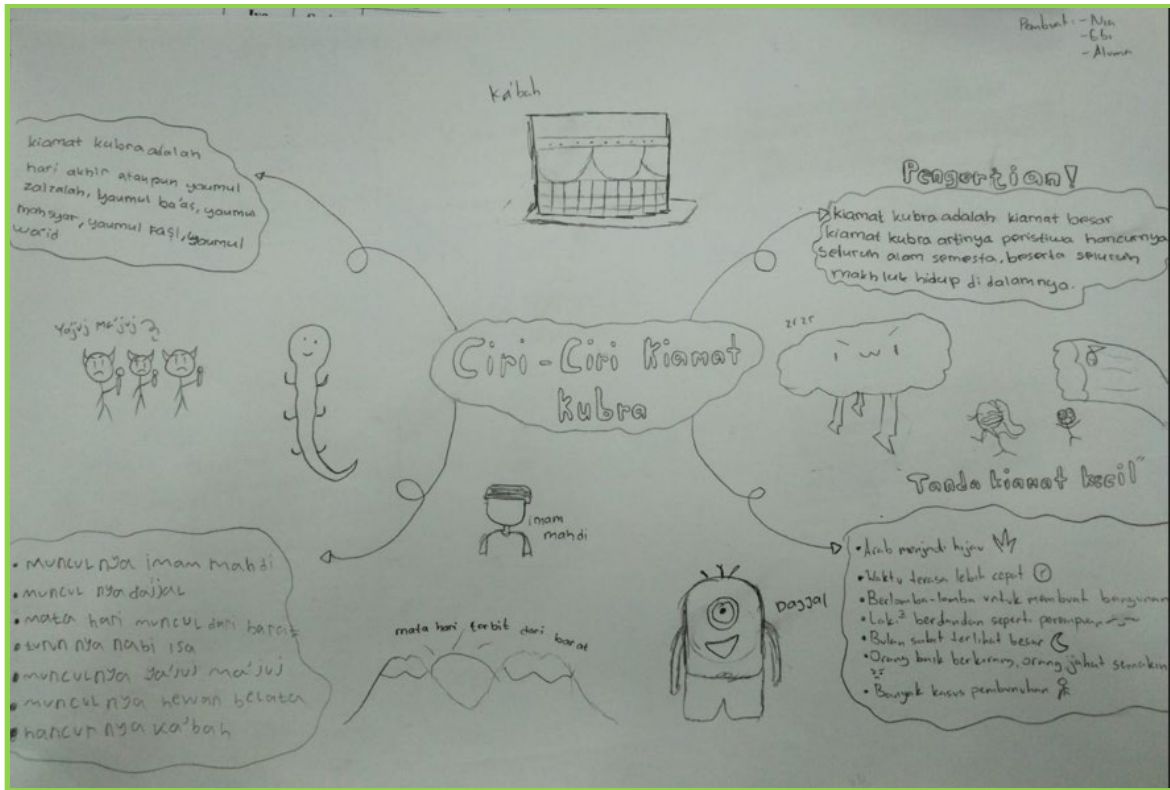 Pembuat: - Nia
Ka'bah
kiamat kubra adalah
hari akhir ataupun yaumul
zalzalah, yaumul ba'as, yaumul
mahsyar, yaumul Faşl, yaumul
wa'id
Pengertian!
kiamat kubra adalah kiamat besar
kiamat kubra artinya peristiwa hancurnya
seluruh alam semesta, beserta seluruh
makhluk hidup di dalamnya.
Ya'juj Ma'juj
Ciri-Ciri Kiamat
Kubra
zrzr
"Tanda kiamat kecil"
imam
mahdi
• muncul nya imam mahdi
• muncul nya dajjal
• mata hari muncul dari barat
• turun nya nabi isa
• muncul nya ya'juj ma'juj
• muncul nya hewan belata
• hancur nya ka'bah
mata hari terbit dari barat
Dajjal
• Arab menjadi hijau
• Waktu terasa lebih cepat
• Berlomba-lomba untuk membuat bangunan
• Laki² berdandan seperti perempuan
• Bulan sabit terlihat besar
• Orang baik berkurang, orang jahat semakin
• Banyak kasus pembunuhan